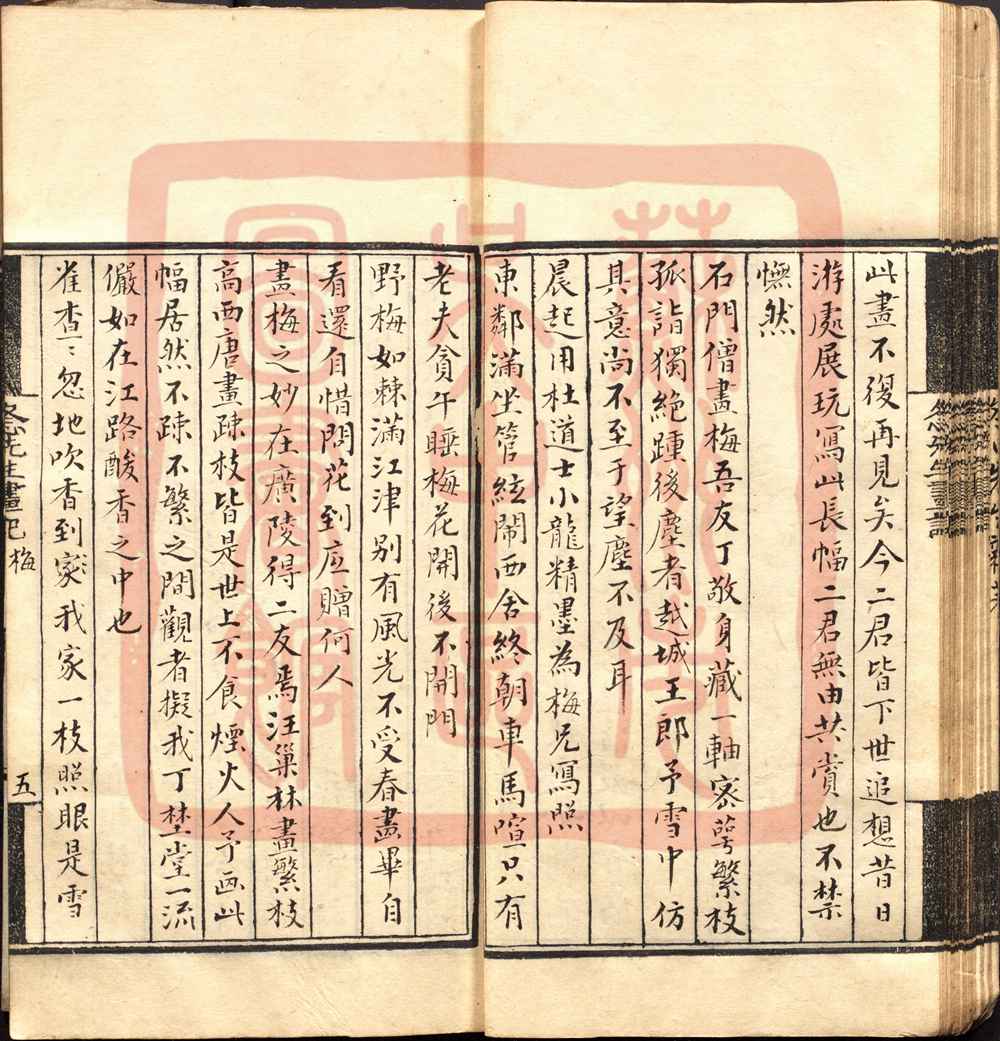 此畫不復再見矣今二君皆下世追想昔日
游處展玩寫此長幅二君無由共賞也不禁
憮然
石門僧畫梅吾友丁敬身藏一軸密萼繁枝
孤詣獨絕踵後塵者越城王郎予雪中仿
其意尚不至于望塵不及耳
晨起用杜道士小龍精墨為梅兄寫照
東鄰滿坐管絃鬧西舍終朝車馬喧只有
老夫貪午睡梅花開後不開門
野梅如棘滿江津別有風光不受春畫畢自
看還自惜問花到底贈何人
畫梅之妙在廣陵得二友焉汪巢林畫繁枝
高西唐畫疎枝皆是世上不食煙火人予画此
幅居然不疎不繁之間觀者擬我丁埜堂一流
儼如在江路酸香之中也
雀查〻忽地吹香到家我家一枝照眼是雪
冬先生畫記 梅
五